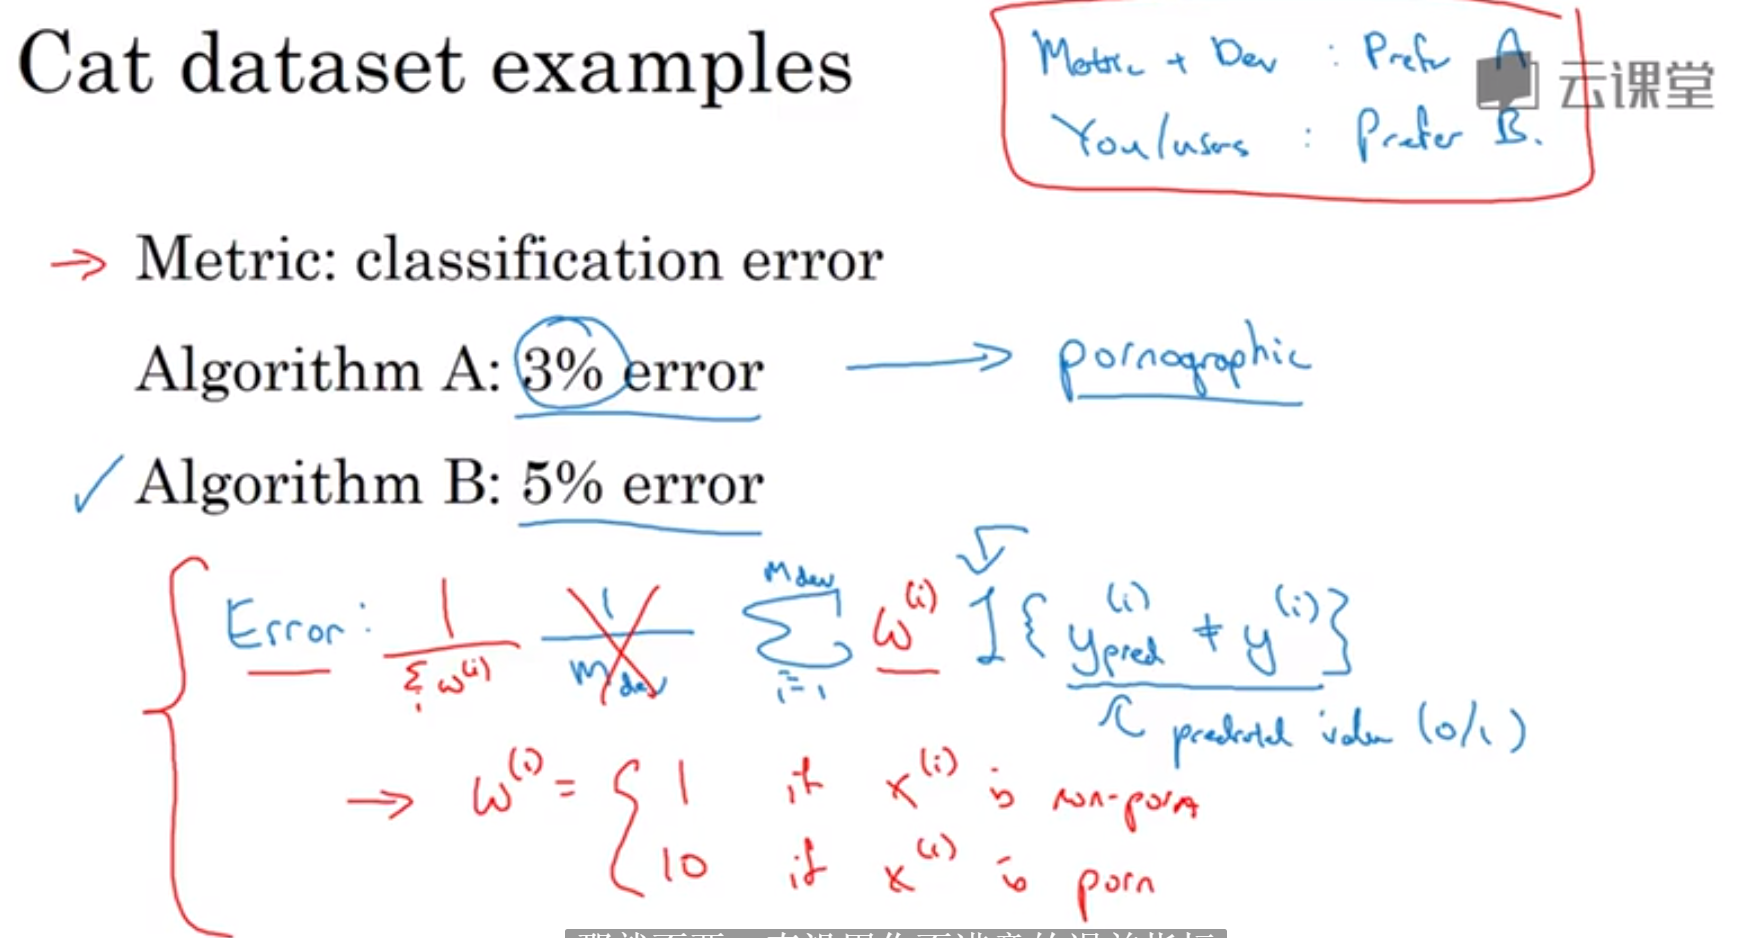 Cat dataset examples
Metric + Dev : Prefer A
You/users : Prefer B.
云课堂
→ Metric: classification error
Algorithm A: 3% error → pornographic
✓ Algorithm B: 5% error
Error: 1/Σᵢ w^(i) 1/m_dev Σ_{i=1}^{m_dev} w^(i) I{y_pred^(i) ≠ y^(i)}
predicted value (0/1)
→ w^(i) = { 1 if x^(i) is non-porn
10 if x^(i) is porn